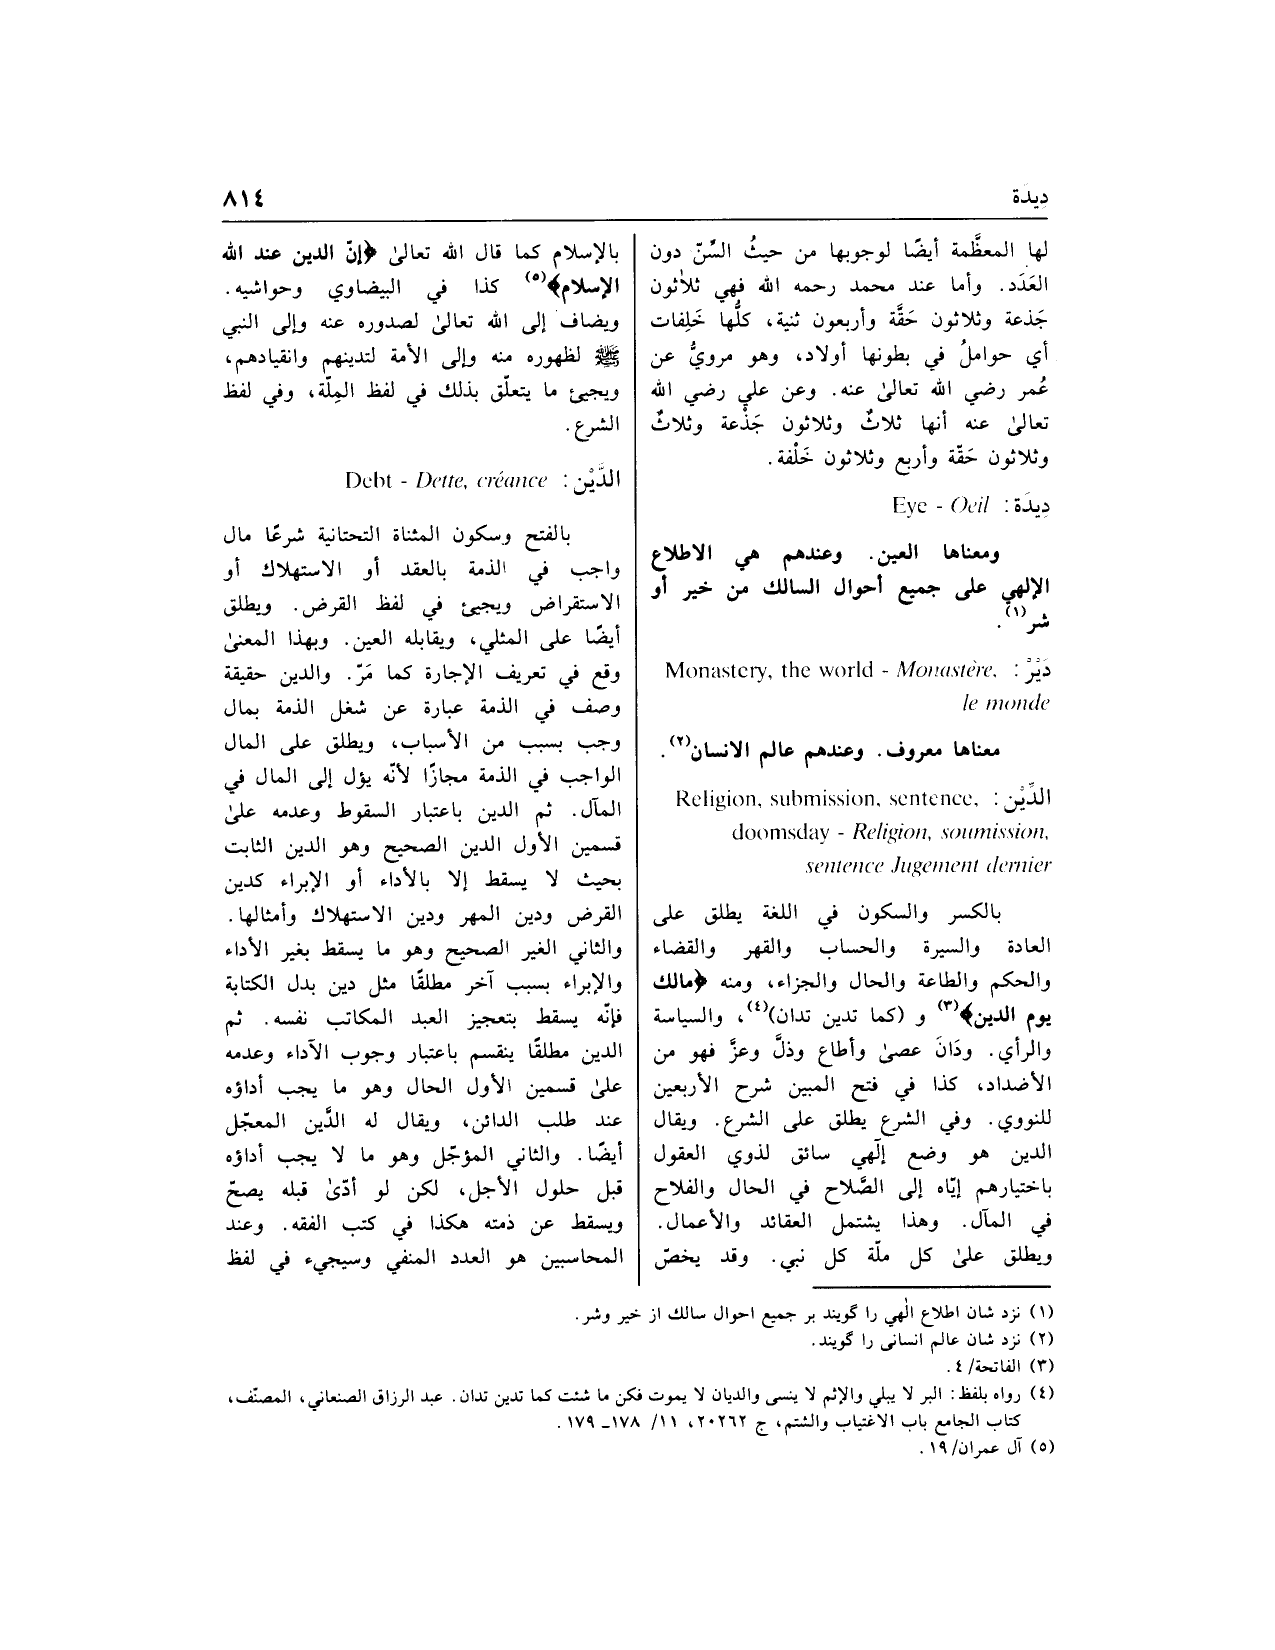 ديدة
٨١٤
لها المعظَّمة أيضًا لوجوبها من حيثُ السِّنّ دون
العَدَد. وأما عند محمد رحمه الله فهي ثلاثون
جَذعة وثلاثون حَقَّة وأربعون ثنية، كلُّها خَلِفات
أي حواملُ في بطونها أولاد، وهو مرويٌّ عن
عُمر رضي الله تعالىٰ عنه. وعن علي رضي الله
تعالىٰ عنه أنها ثلاثٌ وثلاثون جَذْعة وثلاثٌ
وثلاثون حَقّة وأربع وثلاثون خَلْفة.
دِيدَة: Eye - Oeil
ومعناها العين. وعندهم هي الاطلاع
الإلهي على جميع أحوال السالك من خير أو
شر(١).
دَيْرْ: Monastery, the world - Monastère,
le monde
معناها معروف. وعندهم عالم الانسان(٢).
الدِّيْن: Religion, submission, sentence,
doomsday - Religion, soumission,
sentence Jugement dernier
بالكسر والسكون في اللغة يطلق على
العادة والسيرة والحساب والقهر والقضاء
والحكم والطاعة والحال والجزاء، ومنه ﴿مالك
يوم الدين﴾(٣) و (كما تدين تدان)(٤)، والسياسة
والرأي. ودَانَ عصىٰ وأطاع وذلَّ وعزَّ فهو من
الأضداد، كذا في فتح المبين شرح الأربعين
للنووي. وفي الشرع يطلق على الشرع. ويقال
الدين هو وضع إلٓهي سائق لذوي العقول
باختيارهم إيّاه إلى الصَّلاح في الحال والفلاح
في المآل. وهذا يشتمل العقائد والأعمال.
ويطلق علىٰ كل ملّة كل نبي. وقد يخصّ
بالإسلام كما قال الله تعالىٰ ﴿إنّ الدين عند الله
الإسلام﴾(٥) كذا في البيضاوي وحواشيه.
ويضاف إلى الله تعالىٰ لصدوره عنه وإلى النبي
ﷺ لظهوره منه وإلى الأمة لتدينهم وانقيادهم،
ويجيئ ما يتعلّق بذلك في لفظ المِلّة، وفي لفظ
الشرع.
الدَّيْن: Debt - Dette, créance
بالفتح وسكون المثناة التحتانية شرعًا مال
واجب في الذمة بالعقد أو الاستهلاك أو
الاستقراض ويجيئ في لفظ القرض. ويطلق
أيضًا على المثلي، ويقابله العين. وبهذا المعنىٰ
وقع في تعريف الإجارة كما مَرّ. والدين حقيقة
وصف في الذمة عبارة عن شغل الذمة بمال
وجب بسبب من الأسباب، ويطلق على المال
الواجب في الذمة مجازًا لأنّه يؤل إلى المال في
المآل. ثم الدين باعتبار السقوط وعدمه علىٰ
قسمين الأول الدين الصحيح وهو الدين الثابت
بحيث لا يسقط إلا بالأداء أو الإبراء كدين
القرض ودين المهر ودين الاستهلاك وأمثالها.
والثاني الغير الصحيح وهو ما يسقط بغير الأداء
والإبراء بسبب آخر مطلقًا مثل دين بدل الكتابة
فإنّه يسقط بتعجيز العبد المكاتب نفسه. ثم
الدين مطلقًا ينقسم باعتبار وجوب الآداء وعدمه
علىٰ قسمين الأول الحال وهو ما يجب أداؤه
عند طلب الدائن، ويقال له الدَّين المعجّل
أيضًا. والثاني المؤجّل وهو ما لا يجب أداؤه
قبل حلول الأجل، لكن لو أدّىٰ قبله يصحّ
ويسقط عن ذمته هكذا في كتب الفقه. وعند
المحاسبين هو العدد المنفي وسيجيء في لفظ
(١) نزد شان اطلاع الٰهي را گويند بر جميع احوال سالك از خير وشر.
(٢) نزد شان عالم انسانی را گويند.
(٣) الفاتحة/ ٤.
(٤) رواه بلفظ: البر لا يبلي والإثم لا ينسى والديان لا يموت فكن ما شئت كما تدين تدان. عبد الرزاق الصنعاني، المصنّف،
كتاب الجامع باب الاغتياب والشتم، ح ٢٠٢٦٢، ١١/ ١٧٨ـ ١٧٩.
(٥) آل عمران/ ١٩.